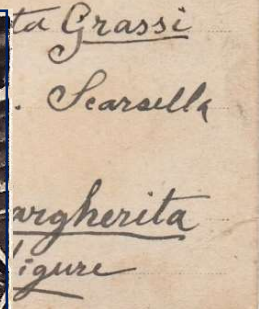 ta Grassi
. Scarsella
argherita
igure